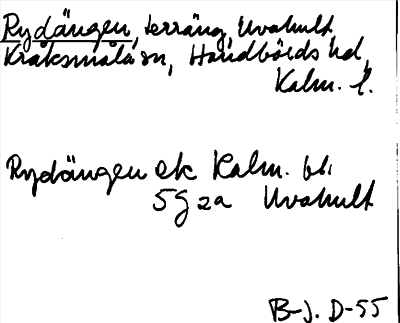 Rydängen, terräng, Uvahult,
Kråksmåla sn, Handbörds hd,
Kalm. l.
Rydängen ek Kalm. bl.
5G 2a Uvahult
B-J. D-55